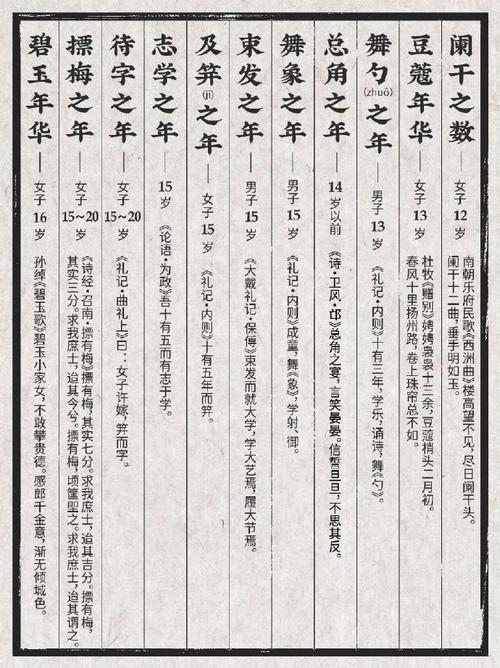 阑干之数——女子 12 岁
南朝乐府民歌《西洲曲》楼高望不见，尽日阑干头。
阑干十二曲，垂手明如玉。
豆蔻年华——女子 13 岁
杜牧《赠别》娉娉袅袅十三余，豆蔻梢头二月初。
春风十里扬州路，卷上珠帘总不如。
舞勺(zhuó)之年——男子 13 岁
《礼记·内则》十有三年，学乐，诵诗，舞《勺》。
总角之年——14 岁以前
《诗·卫风·氓》总角之宴，言笑晏晏。信誓旦旦，不思其反。
舞象之年——男子 15 岁
《礼记·内则》成童，舞《象》，学射、御。
束发之年——男子 15 岁
《大戴礼记·保傅》束发而就大学，学大艺焉，履大节焉。
及笄(jī)之年——女子 15 岁
《礼记·内则》十有五年而笄。
志学之年——15 岁
《论语·为政》吾十有五而有志于学。
待字之年——女子 15~20 岁
《礼记·曲礼上》曰：女子许嫁，笄而字。
摽梅之年——女子 15~20 岁
《诗经·召南·摽有梅》摽有梅，其实七分。求我庶士，迨其吉分。摽有梅，
其实三分。求我庶士，迨其今兮。摽有梅，顷筐塈之。求我庶士，迨其谓之。
碧玉年华——女子 16 岁
孙绰《碧玉歌》碧玉小家女，不敢攀贵德。感郎千金意，渐无倾城色。